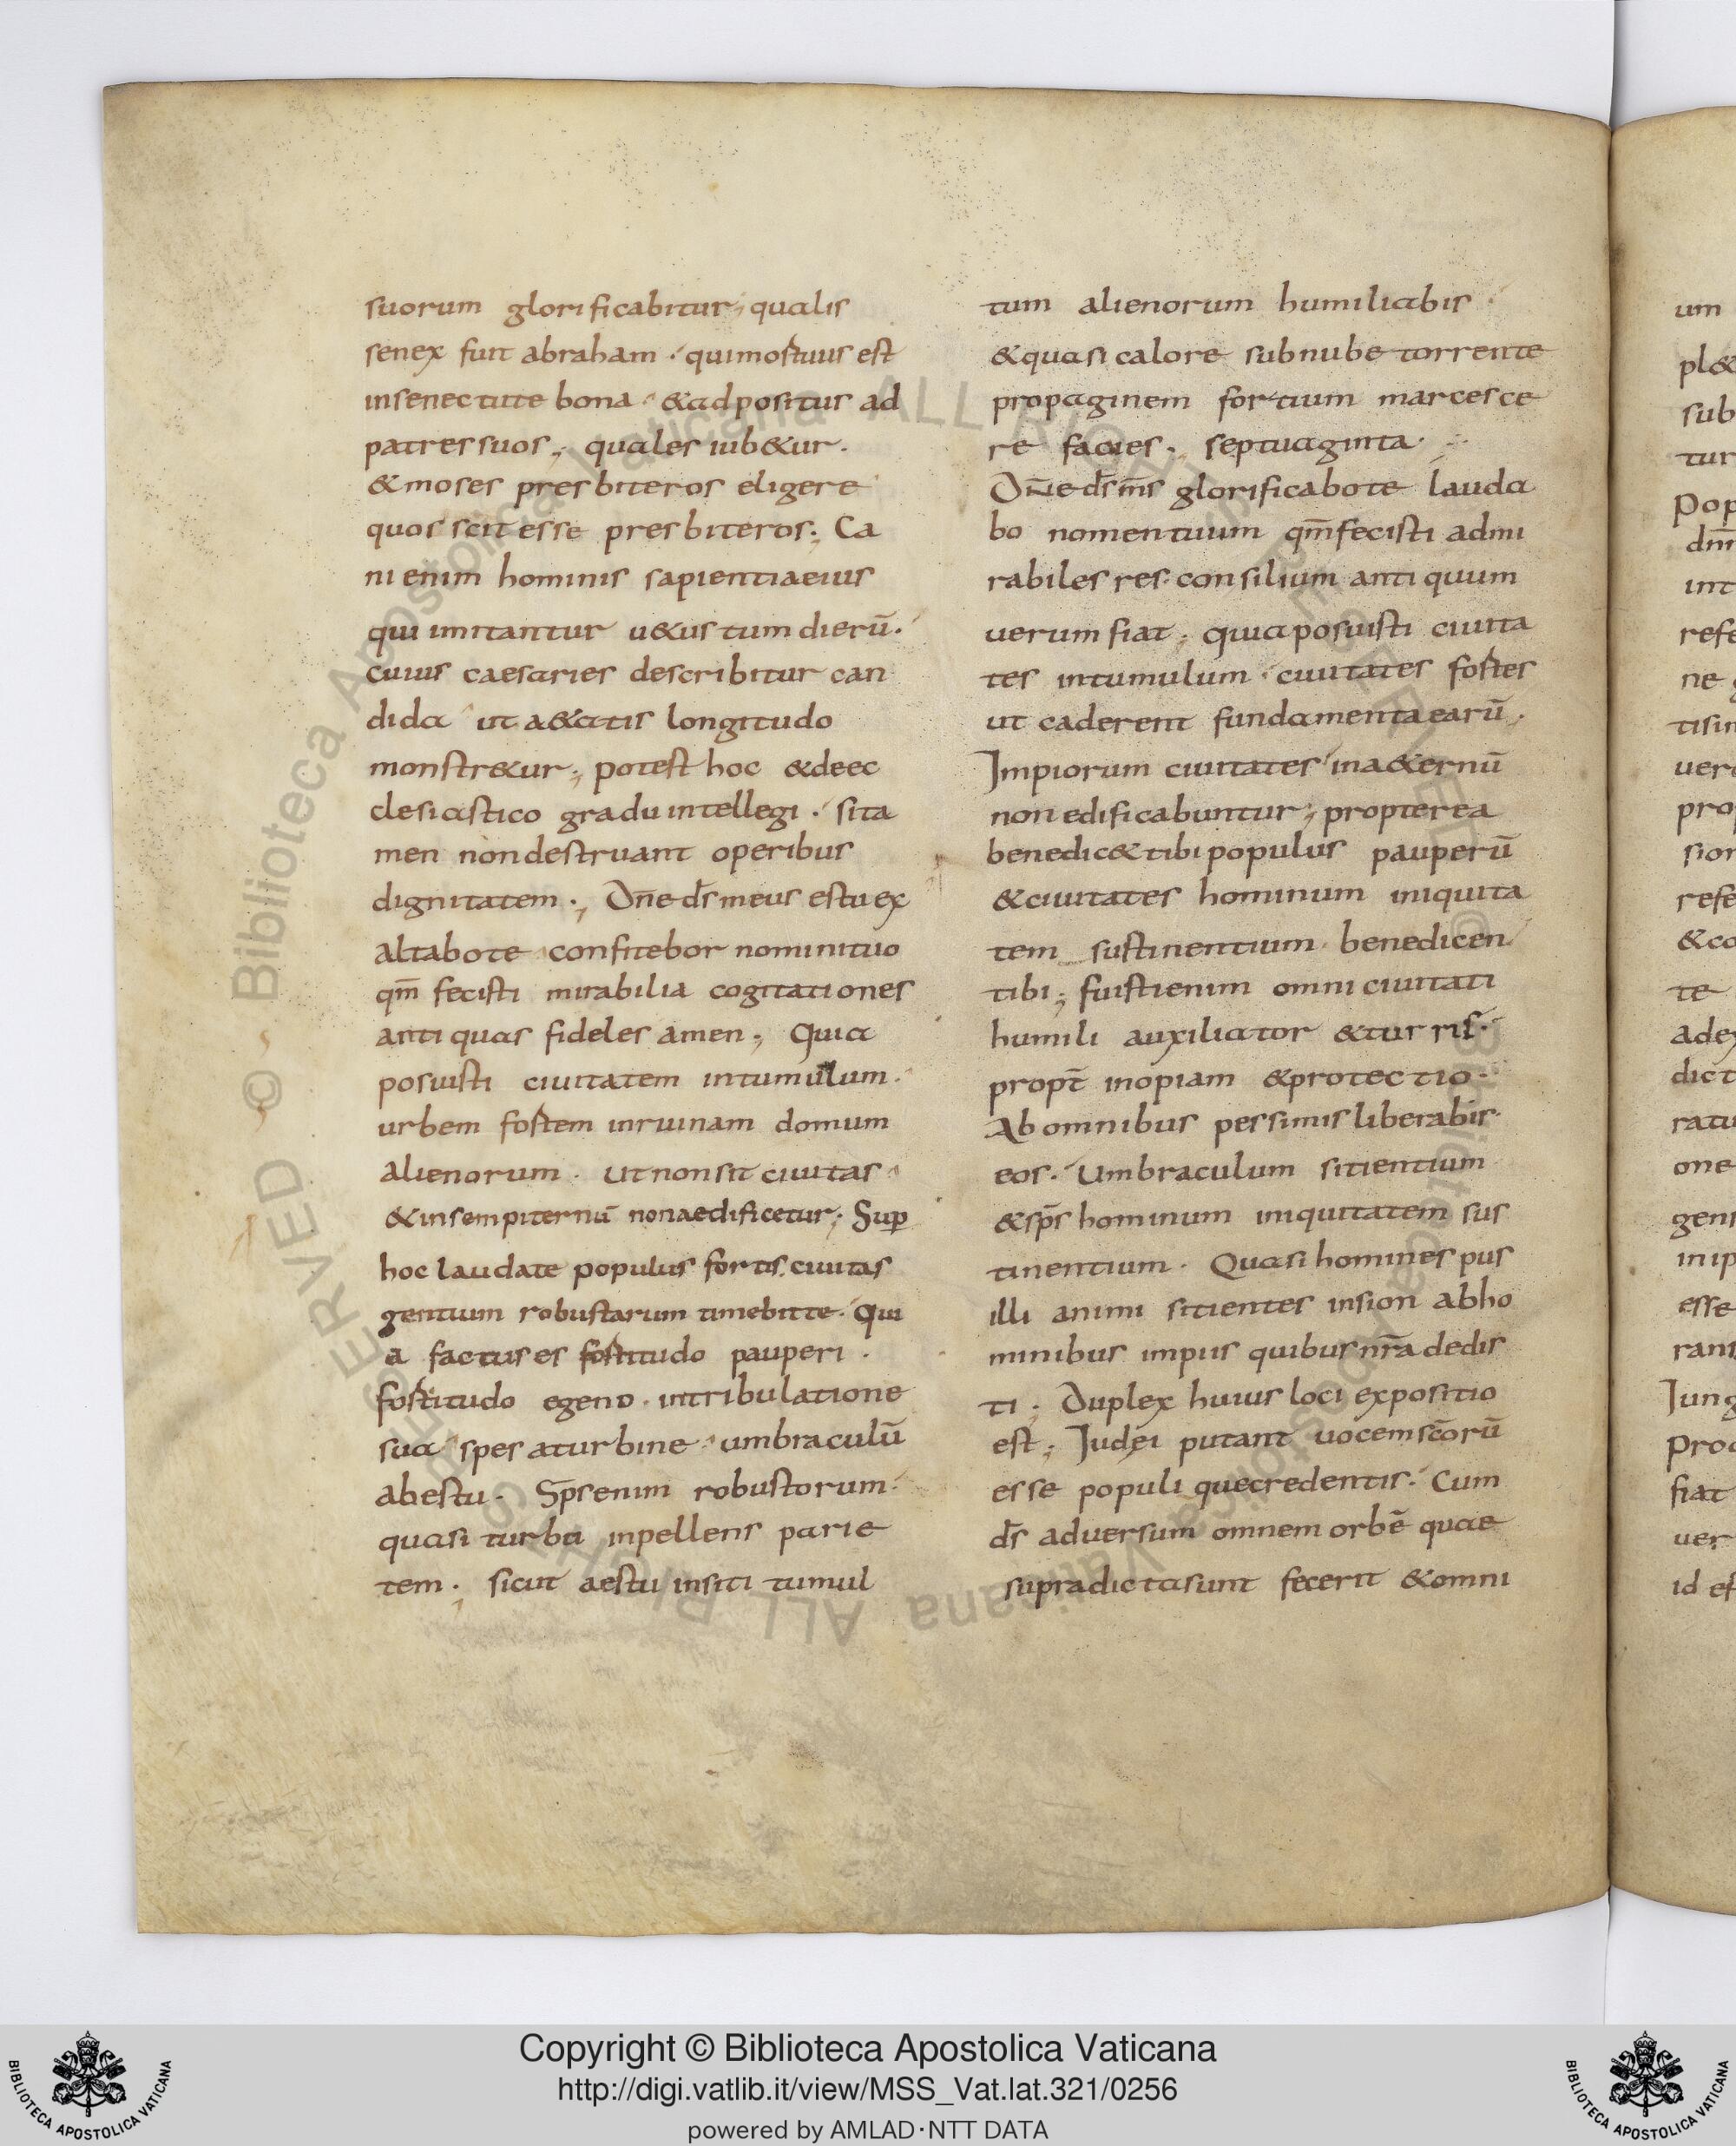 suorum glorificabitur; qualis
senex fuit abraham. qui mortuus est
in senectute bona. & adpositus ad
patres suos; quales iub&ur.
& moses presbiteros eligere
quos scit esse presbiteros; Ca
ni enim hominis sapientia eius
qui imitantur u&ustum dierū.
cuius caesaries describitur can
dida ut a&atis longitudo
monstr&ur; potest hoc & de ec
clesiastico gradu intellegi. si ta
men non destruant operibus
dignitatem; Dn̄e ds̄ meus es tu ex
altabo te confitebor nomini tuo
qm̄ fecisti mirabilia cogitationes
antiquas fideles amen; Quia
posuisti ciuitatem in tumulum.
urbem fortem in ruinam domum
alienorum. Ut non sit ciuitas
& in sempiternū non aedificetur; Sup
hoc laudate populus fortis. ciuitas
gentium robustarum timebit te. Qui
a factus es fortitudo pauperi.
fortitudo egeno. in tribulatione
sua spes a turbine umbraculū
ab estu. Sp̄s enim robustorum
quasi turba inpellens parie
tem; sicut aestu in siti tumul
tum alienorum humiliabis
& quasi calore sub nube torrente
propaginem fortium marcesce
re facies; septuaginta.
Dn̄e ds̄ ms̄ glorificabo te lauda
bo nomen tuum qm̄ fecisti admi
rabiles res. consilium antiquum
uerum fiat. quia posuisti ciuita
tes in tumulum. ciuitates fortes
ut caderent fundamenta earū.
Impiorum ciuitates in a&ernū
non edificabuntur; propterea
benedic& tibi populus pauperū
& ciuitates hominum iniquita
tem sustinentium. benedicen
tibi; fuisti enim omni ciuitati
humili auxiliator & turris.
propt̄ inopiam & protectio.
Ab omnibus pessimis liberabis
eos. Umbraculum sitientium
& sp̄s hominum iniquitatem sus
tinentium. Quasi homines pus
illi animi sitientes in sion ab ho
minibus impiis quibus nr̄a dedis
ti; Duplex huius loci expositio
est; Judęi putant uocem sc̄orū
esse populique credentis. Cum
ds̄ aduersum omnem orbē quae
supra dicta sunt fecerit & omni
um
pl&
sub
tur
Pop
int
refe
ne
uer
pro
sion
refe
& co
te
adex
dict
ratu
one
gens
in ip
esse
rant
Jung
Pro
fiat
uer
id est
© Biblioteca Apostolica Vaticana ALL RIGHTS RESERVED
Copyright © Biblioteca Apostolica Vaticana
http://digi.vatlib.it/view/MSS_Vat.lat.321/0256
powered by AMLAD·NTT DATA
BIBLIOTECA APOSTOLICA VATICANA
BIBLIOTECA APOSTOLICA VATICANA